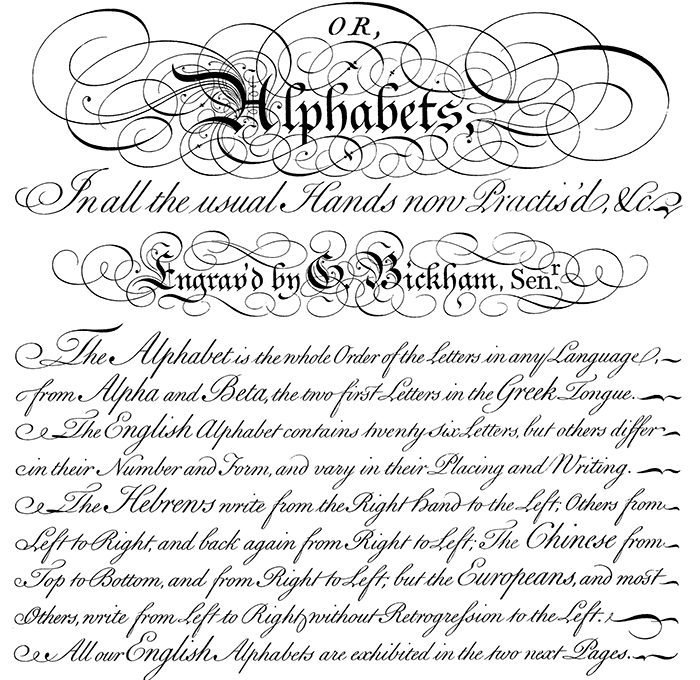 OR,
Alphabets,
In all the usual Hands now Practis'd, &c.
Engrav'd by G. Bickham, Senr.
The Alphabet is the whole Order of the Letters in any Language,
from Alpha and Beta, the two first Letters in the Greek Tongue.
The English Alphabet contains twenty-six Letters, but others differ
in their Number and Form, and vary in their Placing and Writing.
The Hebrews write from the Right hand to the Left; Others from
Left to Right, and back again from Right to Left; The Chinese from
Top to Bottom, and from Right to Left; but the Europeans, and most
Others, write from Left to Right, without Retrogression to the Left.
All our English Alphabets are exhibited in the two next Pages.